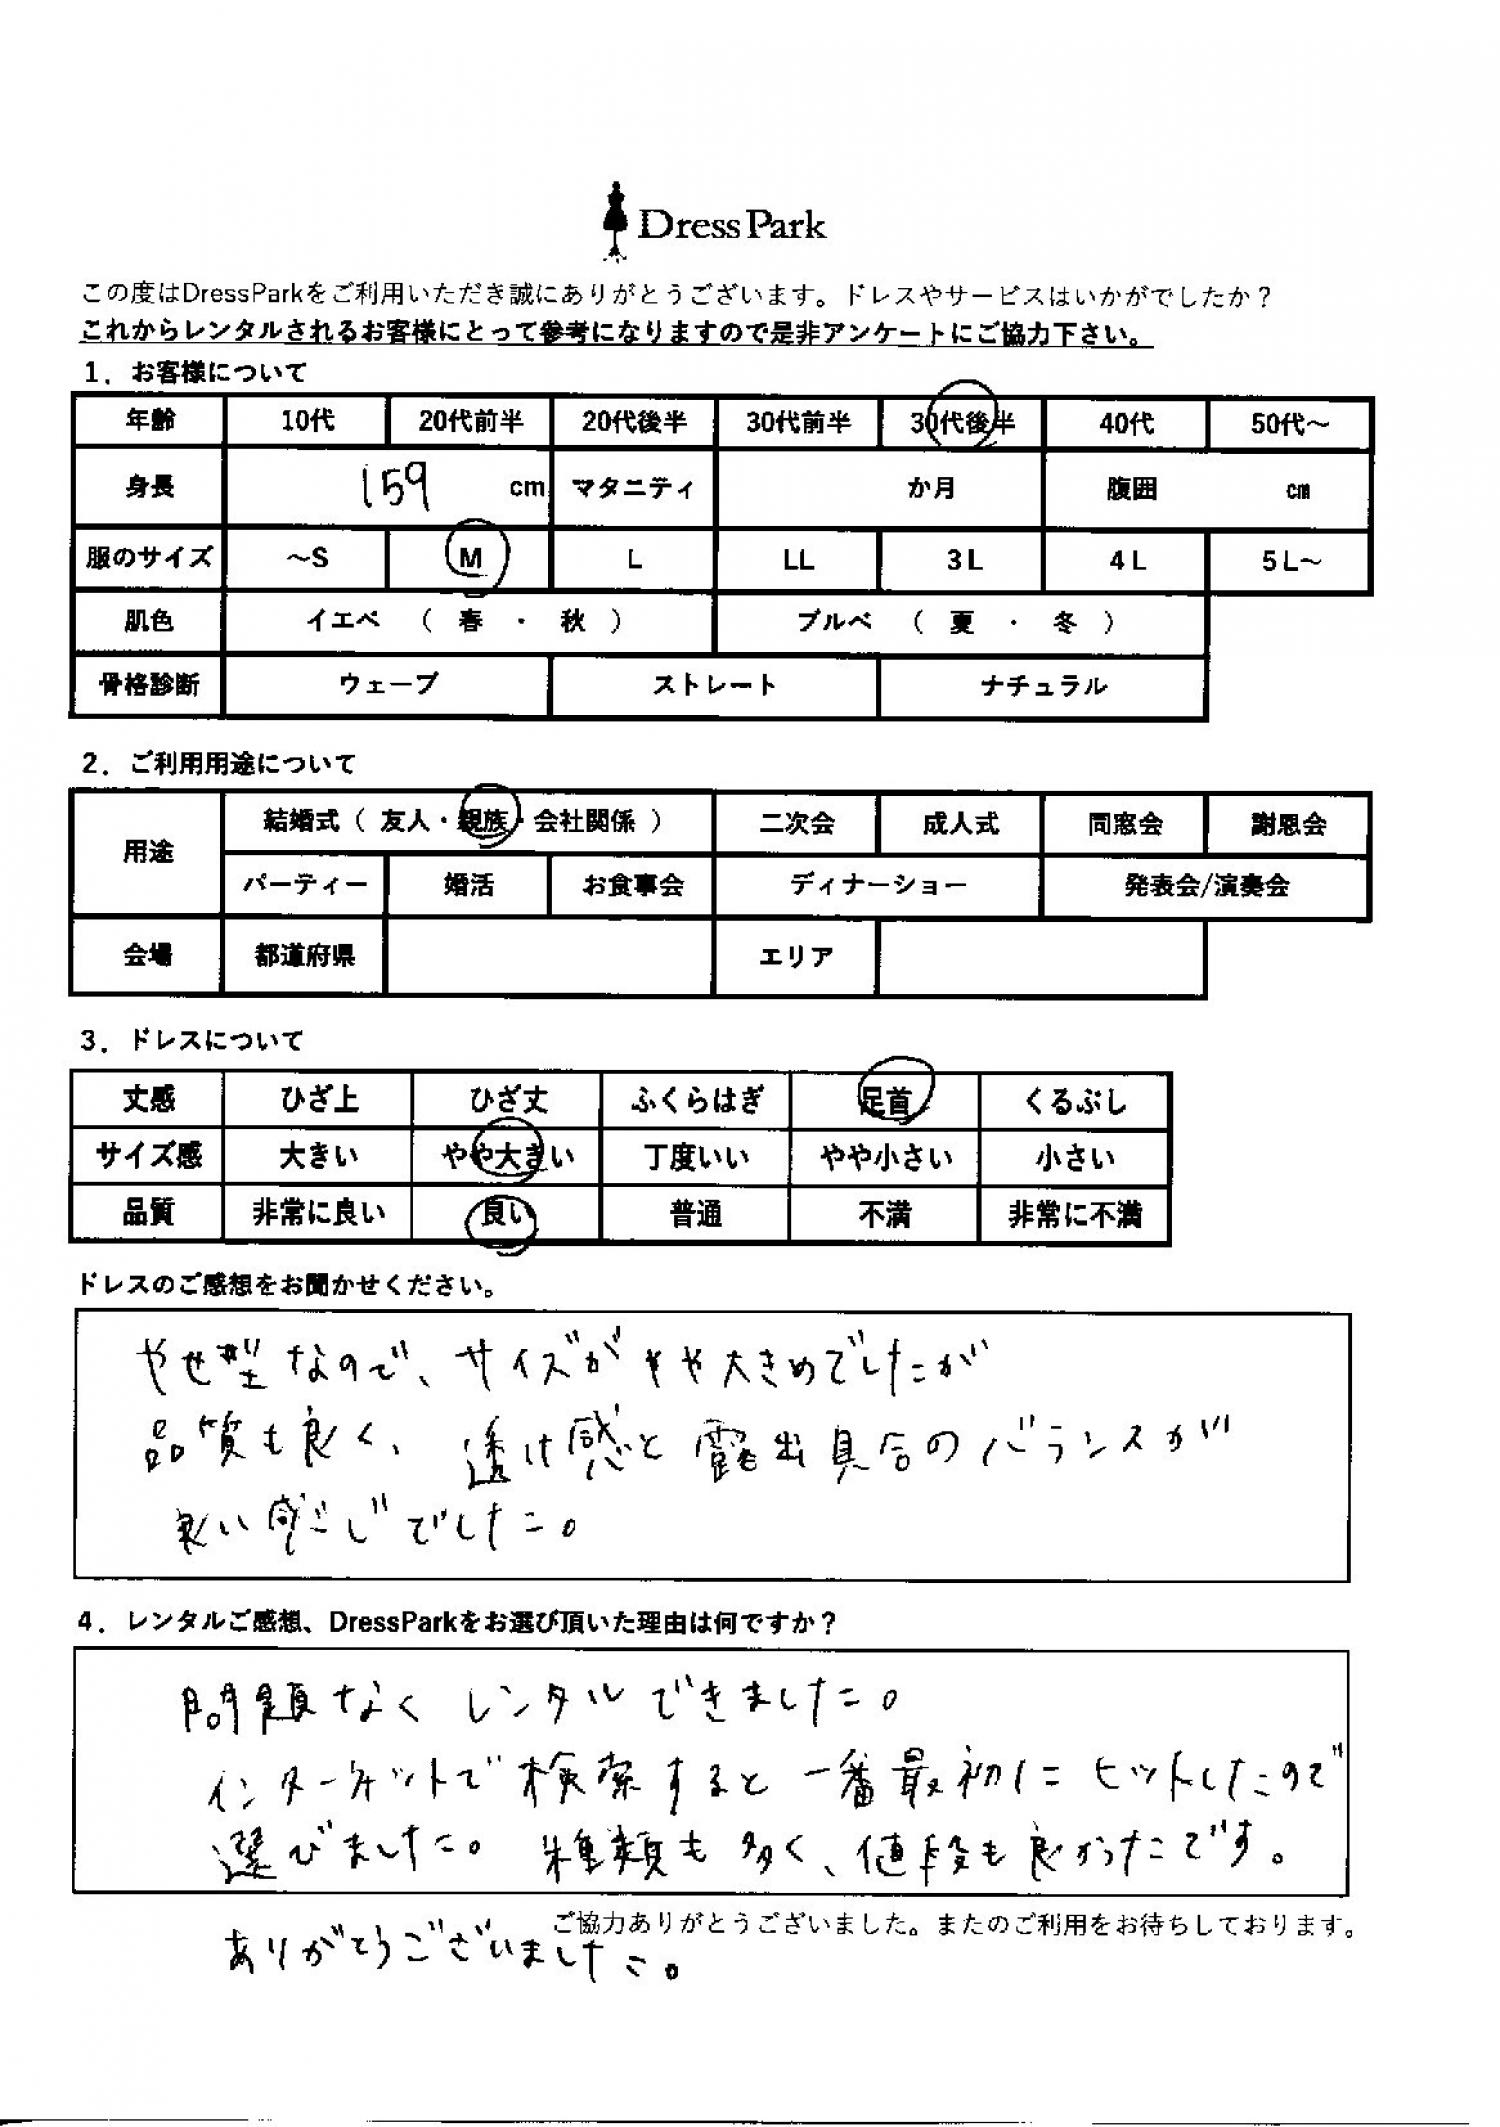 DressPark
この度はDressParkをご利用いただき誠にありがとうございます。ドレスやサービスはいかがでしたか？
これからレンタルされるお客様にとって参考になりますので是非アンケートにご協力下さい。
1．お客様について
年齢 10代 20代前半 20代後半 30代前半 30代後半 40代 50代～
身長 159 cm マタニティ か月 腹囲 cm
服のサイズ ～S M L LL 3L 4L 5L～
肌色 イエベ （ 春 ・ 秋 ） ブルベ （ 夏 ・ 冬 ）
骨格診断 ウェーブ ストレート ナチュラル
2．ご利用用途について
用途 結婚式（ 友人・親族・会社関係 ） 二次会 成人式 同窓会 謝恩会
パーティー 婚活 お食事会 ディナーショー 発表会/演奏会
会場 都道府県 エリア
3．ドレスについて
丈感 ひざ上 ひざ丈 ふくらはぎ 足首 くるぶし
サイズ感 大きい やや大きい 丁度いい やや小さい 小さい
品質 非常に良い 良い 普通 不満 非常に不満
ドレスのご感想をお聞かせください。
やせ型なので、サイズがやや大きめでしたが
品質も良く、透け感と露出具合のバランスが
良い感じでした。
4．レンタルご感想、DressParkをお選び頂いた理由は何ですか？
問題なくレンタルできました。
インターネットで検索すると一番最初にヒットしたので
選びました。種類も多く、値段も良かったです。
ご協力ありがとうございました。またのご利用をお待ちしております。
ありがとうございました。